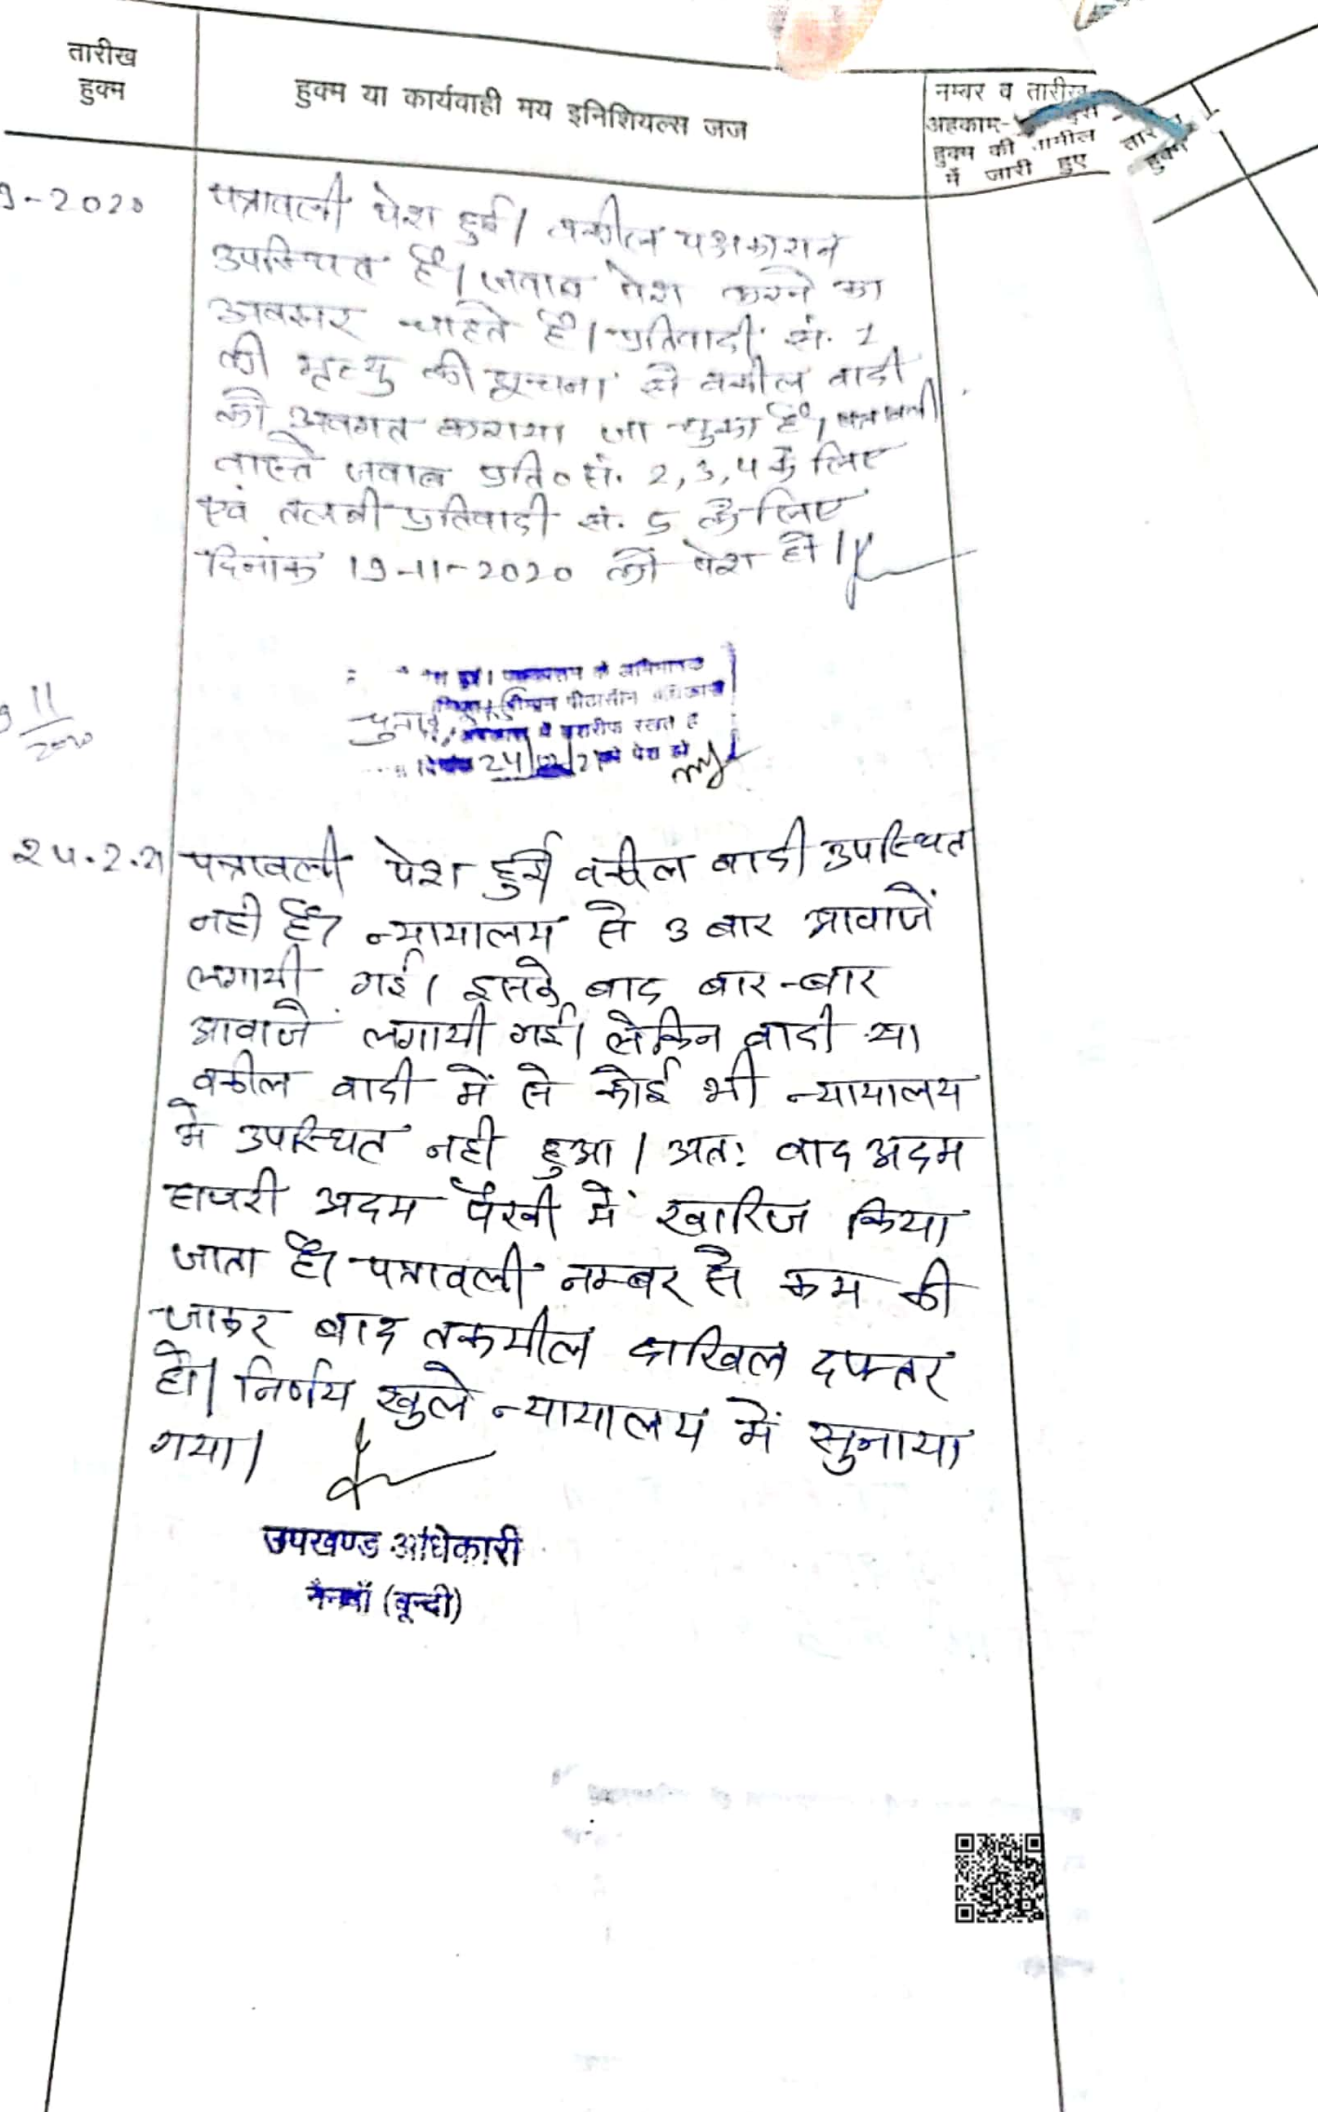 तारीख
हुक्म
हुक्म या कार्यवाही मय इनिशियल्स जज
नम्बर व तारीख
अहकाम-
हुक्म की तामील
में जारी हुए
तारीख
हुक्म
9-2020
पत्रावली पेश हुई। वकील पक्षकारान
उपस्थित है। जवाब पेश करने का
अवसर चाहते है। प्रतिवादी सं. 1
की मृत्यु की सूचना से वकील वादी
को अवगत कराया जा चुका है। पत्रावली
वास्ते जवाब प्रति० सं. 2, 3, 4 के लिए
एवं तलबी प्रतिवादी सं. 5 के लिए
दिनांक 19-11-2020 को पेश हो।
11
2020
पीठासीन
रखते है
24 पेश हो
24.2.21
पत्रावली पेश हुई वकील वादी उपस्थित
नही है। न्यायालय से 3 बार आवाजें
लगायी गई। इसके बाद बार-बार
आवाजे लगायी गई। लेकिन वादी या
वकील वादी में से कोई भी न्यायालय
मे उपस्थित नही हुआ। अतः वाद अदम
हाजरी अदम पैरवी में खारिज किया
जाता है। पत्रावली नम्बर से कम की
जाकर बाद तकमील दाखिल दफ्तर
हो। निर्णय खुले न्यायालय में सुनाया
गया।
उपखण्ड अधिकारी
नैनवाँ (बून्दी)